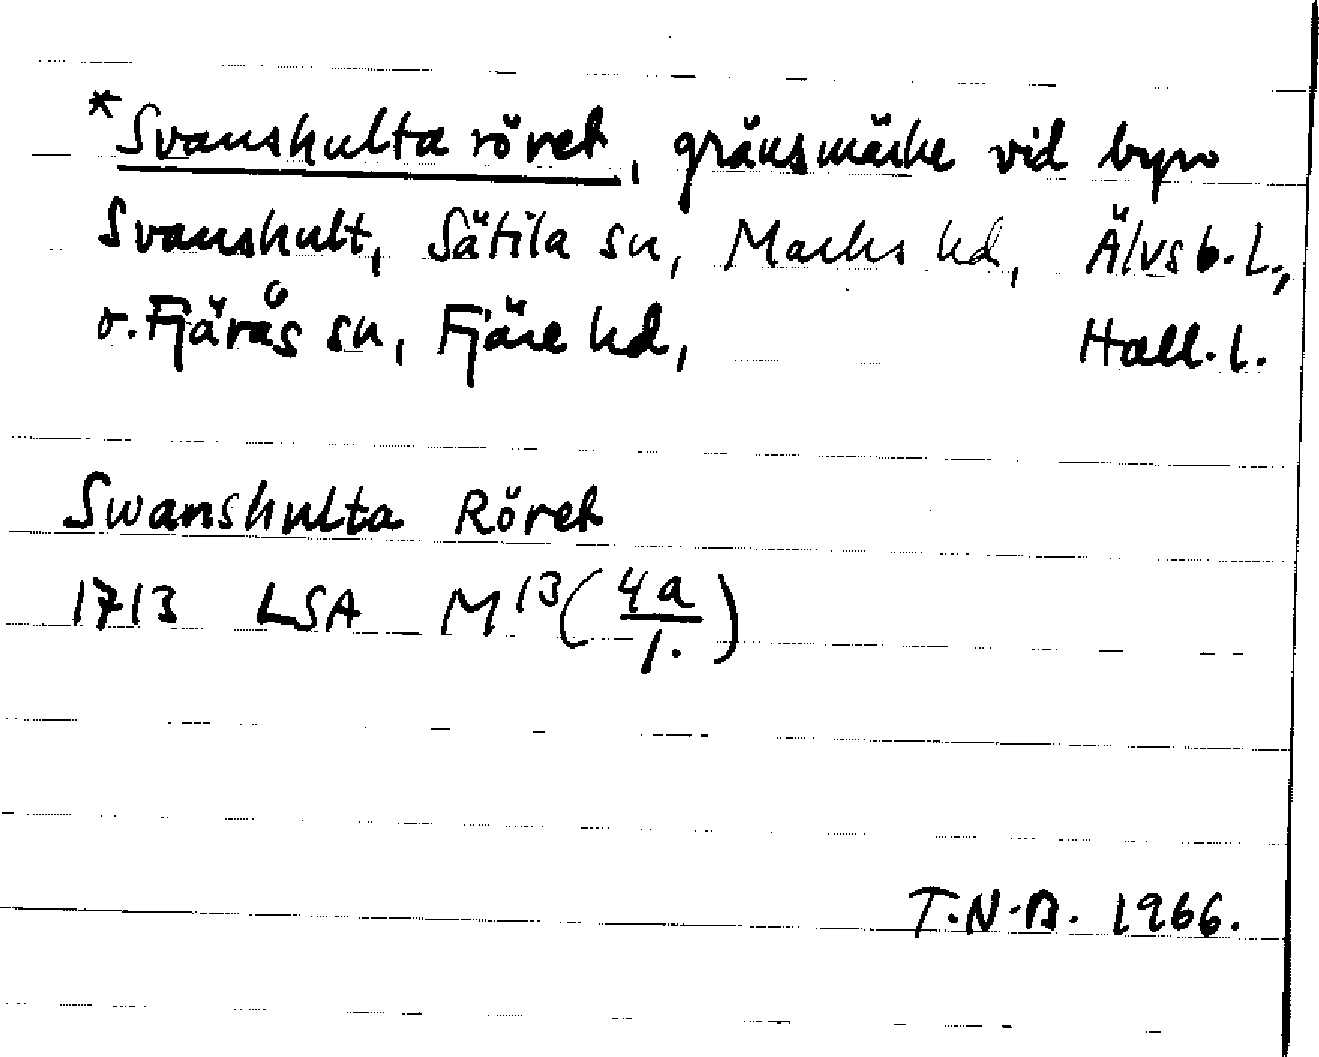 *Svanshulta röret, gränsmärke vid byn
Svanshult, Sätila sn, Marks hd, Älvsb. l.,
o. Fjärås sn, Fjäre hd, Hall. l.
Swanshulta Röret
1713 LSA M 13 (4a/1.)
T.N.B. 1966.